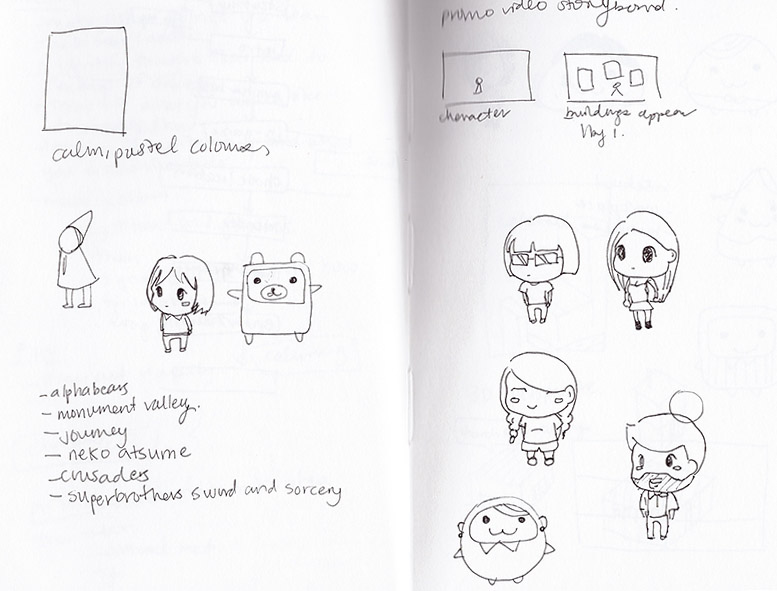 calm, pastel colours
- alphabears
- monument valley.
- journey
- neko atsume
- crusaders
- superbrothers sword and sorcery
promo video storyboard.
character
buildings appear